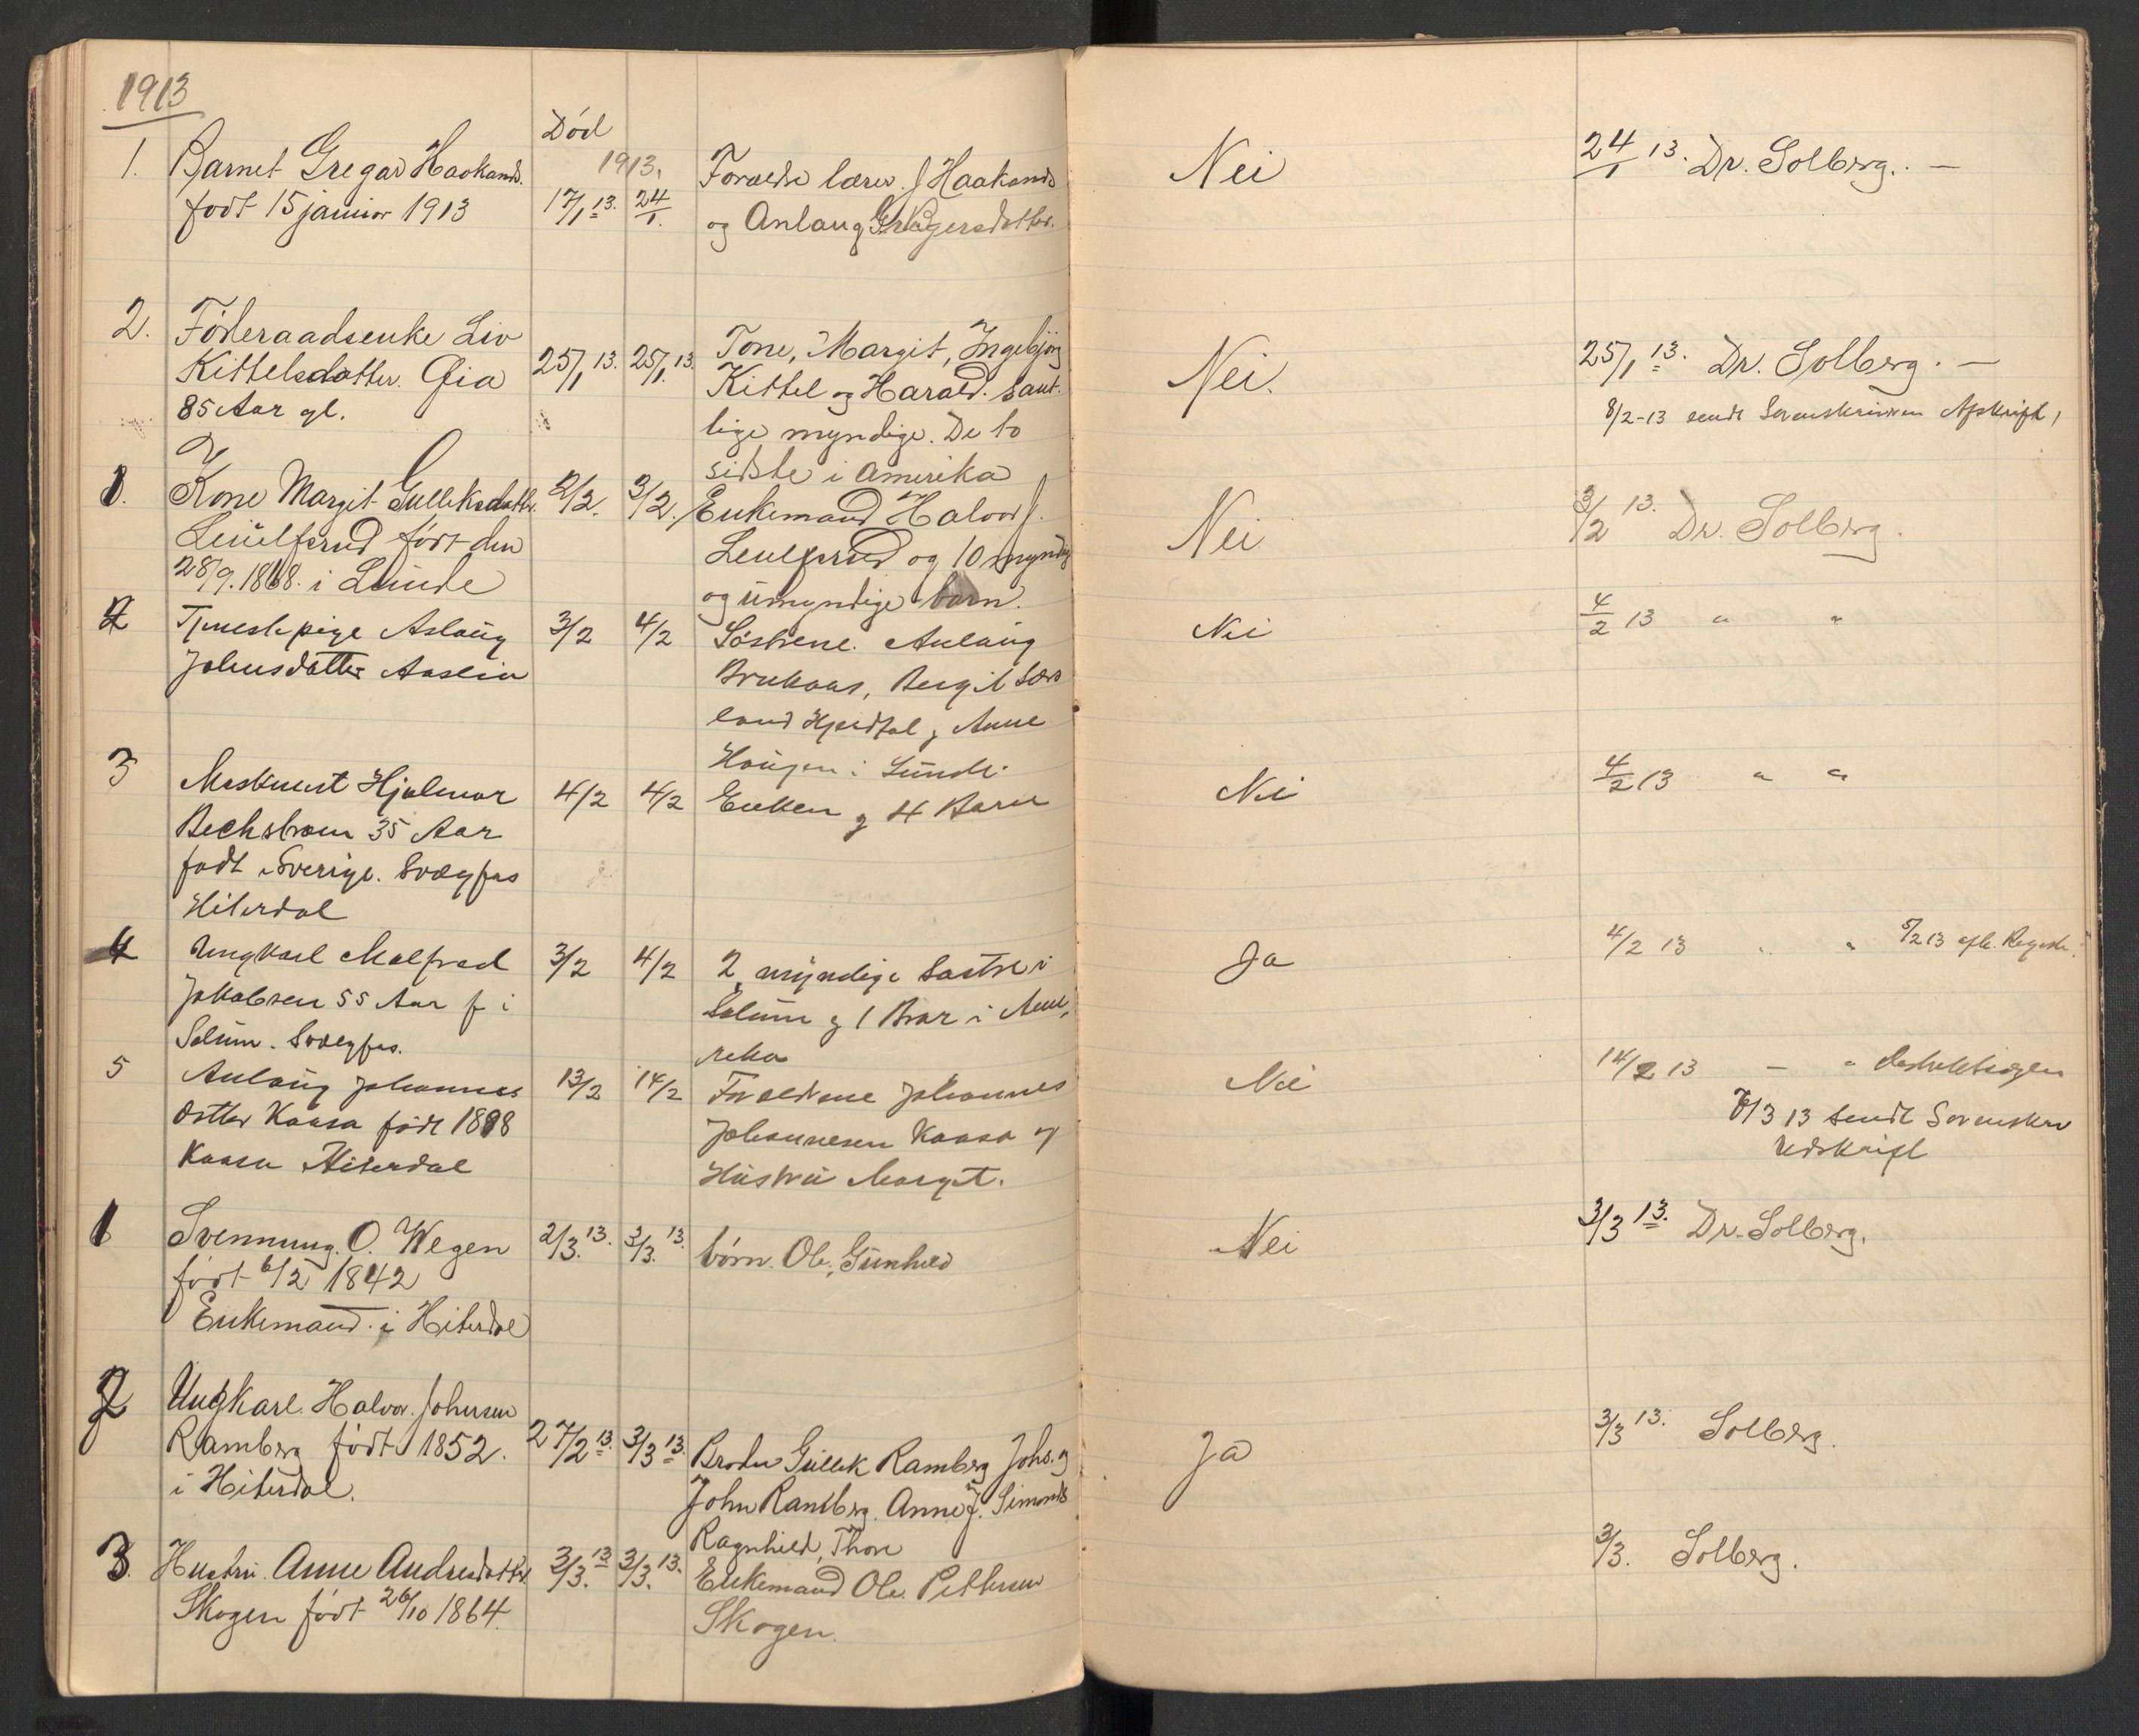 1913
Død
1. Barnet Gregar Haakands. 1913. Forældre lærer J Haakands Nei 24/1 13. Dr. Solberg. —
født 15 januar 1913 17/1 13. 24/1. og Anlaug Gregersdatter.
2. Föderaadsenke Liv Tone, Margit, Ingebjörg 25/1 13. Dr. Solberg. —
Kittelsdatter. Gia 25/1 13. 25/1. 13. Kittel og Harald. Samt- Nei.
85 Aar gl. lige myndige. De to 8/2-13 sendt Sorenskriveren Afskrift,
sidste i Amerika
1. Kone Margit Gulleksdatter. 2/2. 3/2. Enkemand Halvor J. Nei 3/2 13. Dr. Solberg.
Leulfsrud født den Leulfsrud og 10 myndig
28/9. 1868. i Lunde og umyndige børn.
2 Tjenestepige Aslaug 3/2 4/2 Søstrene. Anlaug Nei 4/2 13 " "
Johnsdatter Aaslia Brukaas, Bergit
land Hjerdtal g Anne
Haugen i Lunde.
3 Maskinist Hjalmar 4/2 4/2 Enken g 4 Barn Nei 4/2 13 " "
Bechstrøm 35 Aar
født i Sverige. Svælgfos
Hiterdal
4 Ungkarl Malfred 3/2 4/2 2 myndige Søstre i Ja 4/2 13 " " 5/2 13
Jakobsen 55 Aar f i Solum g 1 Bror i Ame,
Solum. Svælgfos. rika
5 Anlaug Johannes 13/2 14/2 Forældrene Johannes Nei 14/2 13 — "
datter Kaasa født 1898 Johannesen Kaasa og 7/3 13 sendt Sorenskr
Kaasa Hiterdal Hustru Margit. Udskrift
1 Svennung. O. Wegen 2/3. 13. 3/3. 13. børn. Ole, Gunhild Nei 3/3 13. Dr. Solberg.
født 6/2 1842
Enkemand i Hiterdal
2 Ungkarl. Halvor. Johnsen 3/3 13. Solberg.
Ramberg født 1852. 27/2 13. 3/3 13. Broder Gullek Ramberg Johs. og Ja
i Hiterdal. John Ramberg. Anne J. Simonds
Ragnhild, Thore
3. Hustru. Anne Andresdatter 3/3. 13 3/3. 13. Enkemand Ole. Pettersen 3/3. Solberg.
Skogen født 26/10 1864. Skogen.